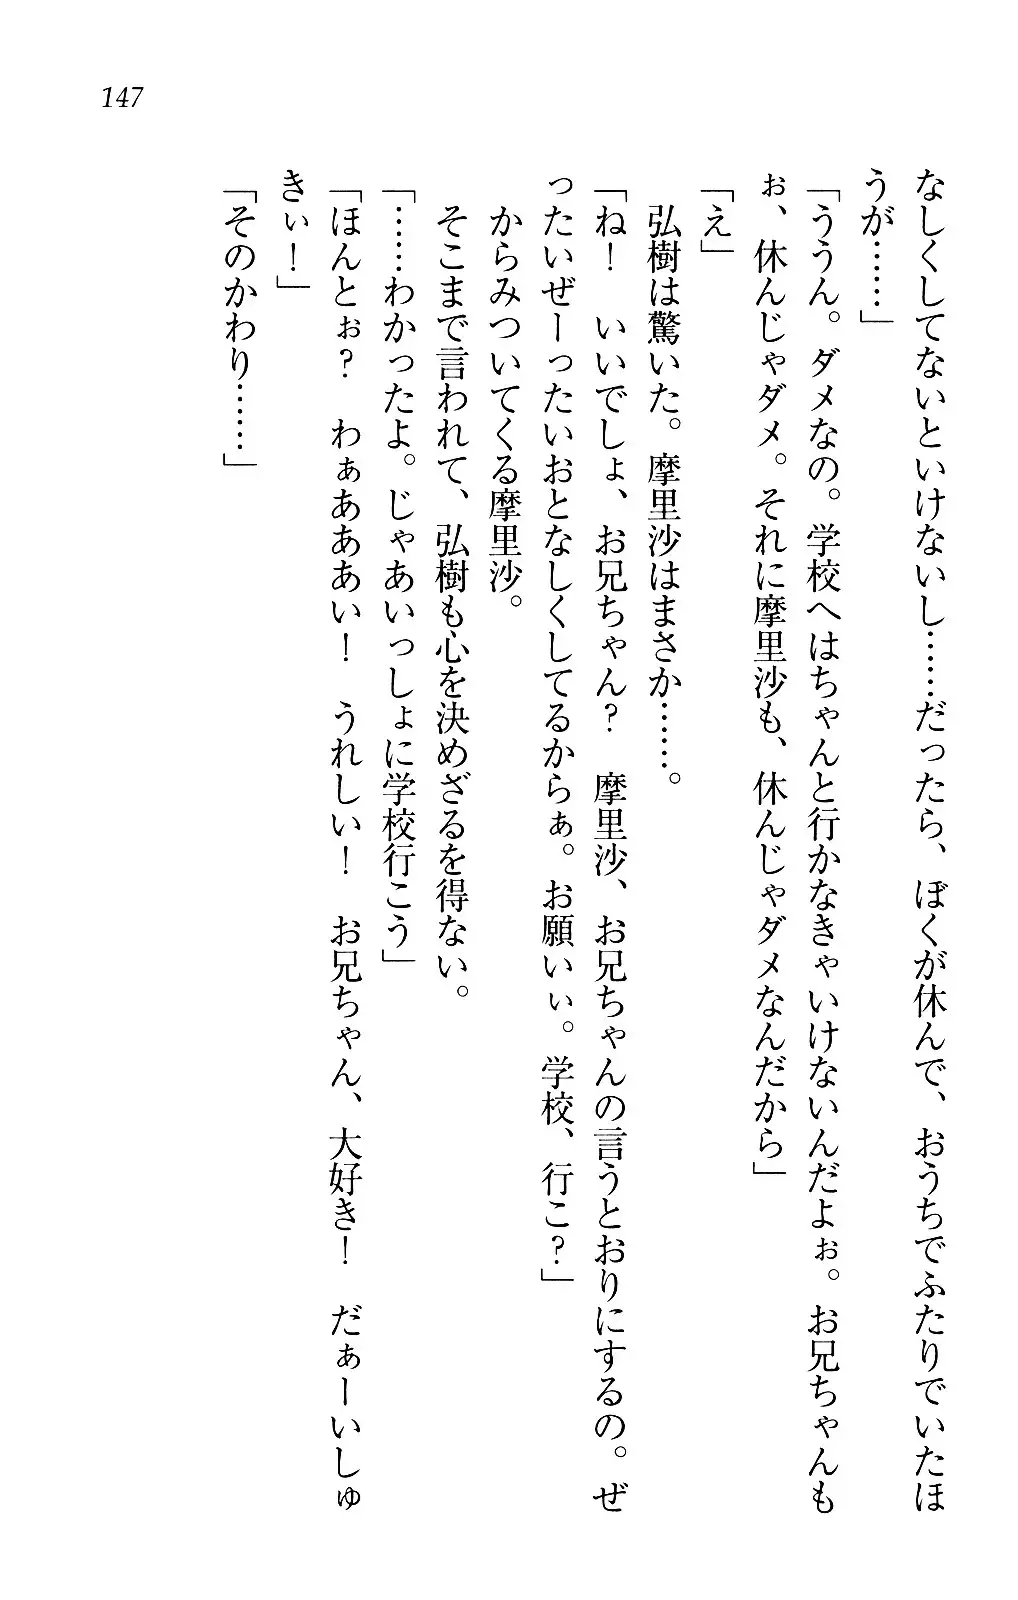 147
なしくしてないといけないし……だったら、ぼくが休んで、おうちでふたりでいたほ
うが……」
「ううん。ダメなの。学校へはちゃんと行かなきゃいけないんだよぉ。お兄ちゃんも
ぉ、休んじゃダメ。それに摩里沙も、休んじゃダメなんだから」
「え」
弘樹は驚いた。摩里沙はまさか……。
「ね！　いいでしょ、お兄ちゃん？　摩里沙、お兄ちゃんの言うとおりにするの。ぜ
ったいぜーったいおとなしくしてるからぁ。お願いぃ。学校、行こ？」
からみついてくる摩里沙。
そこまで言われて、弘樹も心を決めざるを得ない。
「……わかったよ。じゃあいっしょに学校行こう」
「ほんとぉ？　わぁあああい！　うれしい！　お兄ちゃん、大好き！　だぁーいしゅ
きぃ！」
「そのかわり……」